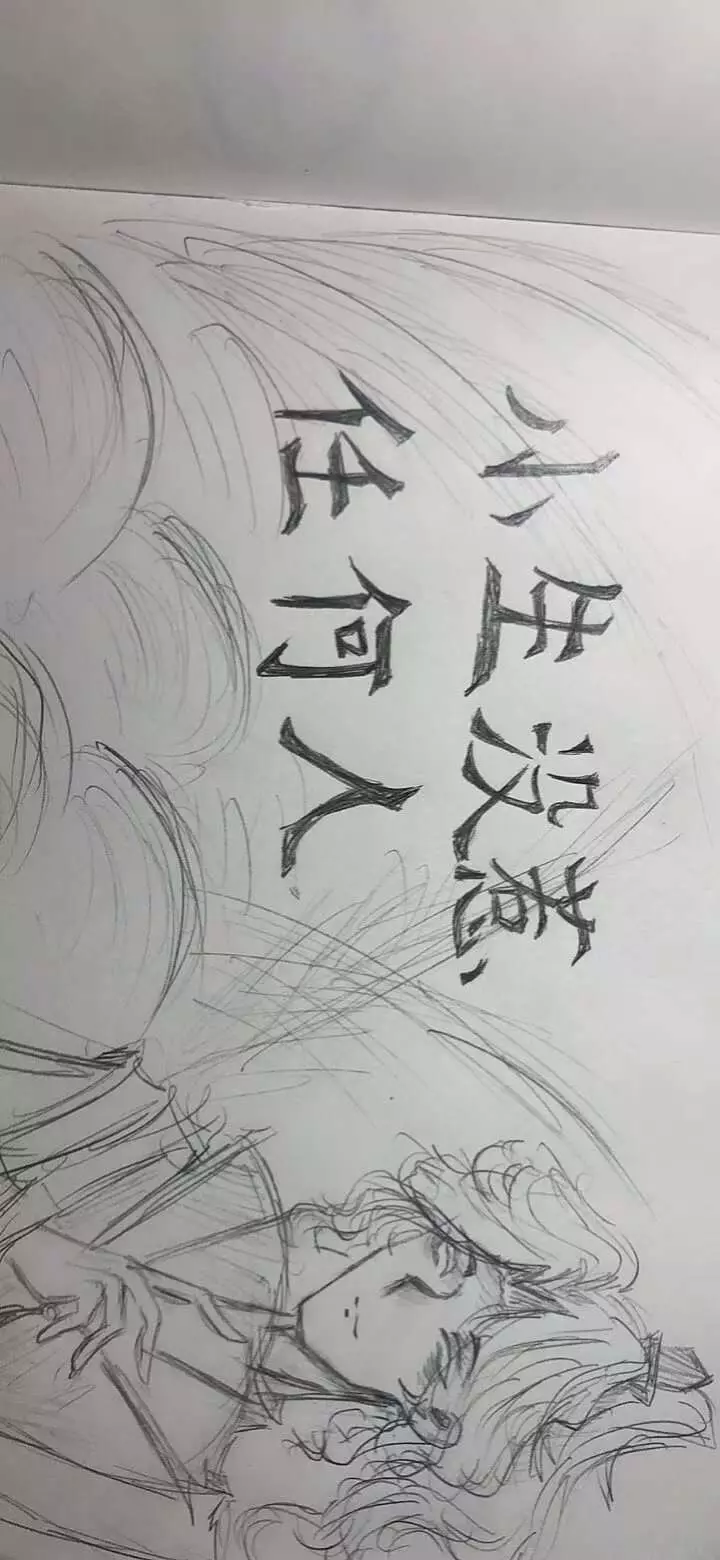 小生没惹
任何人